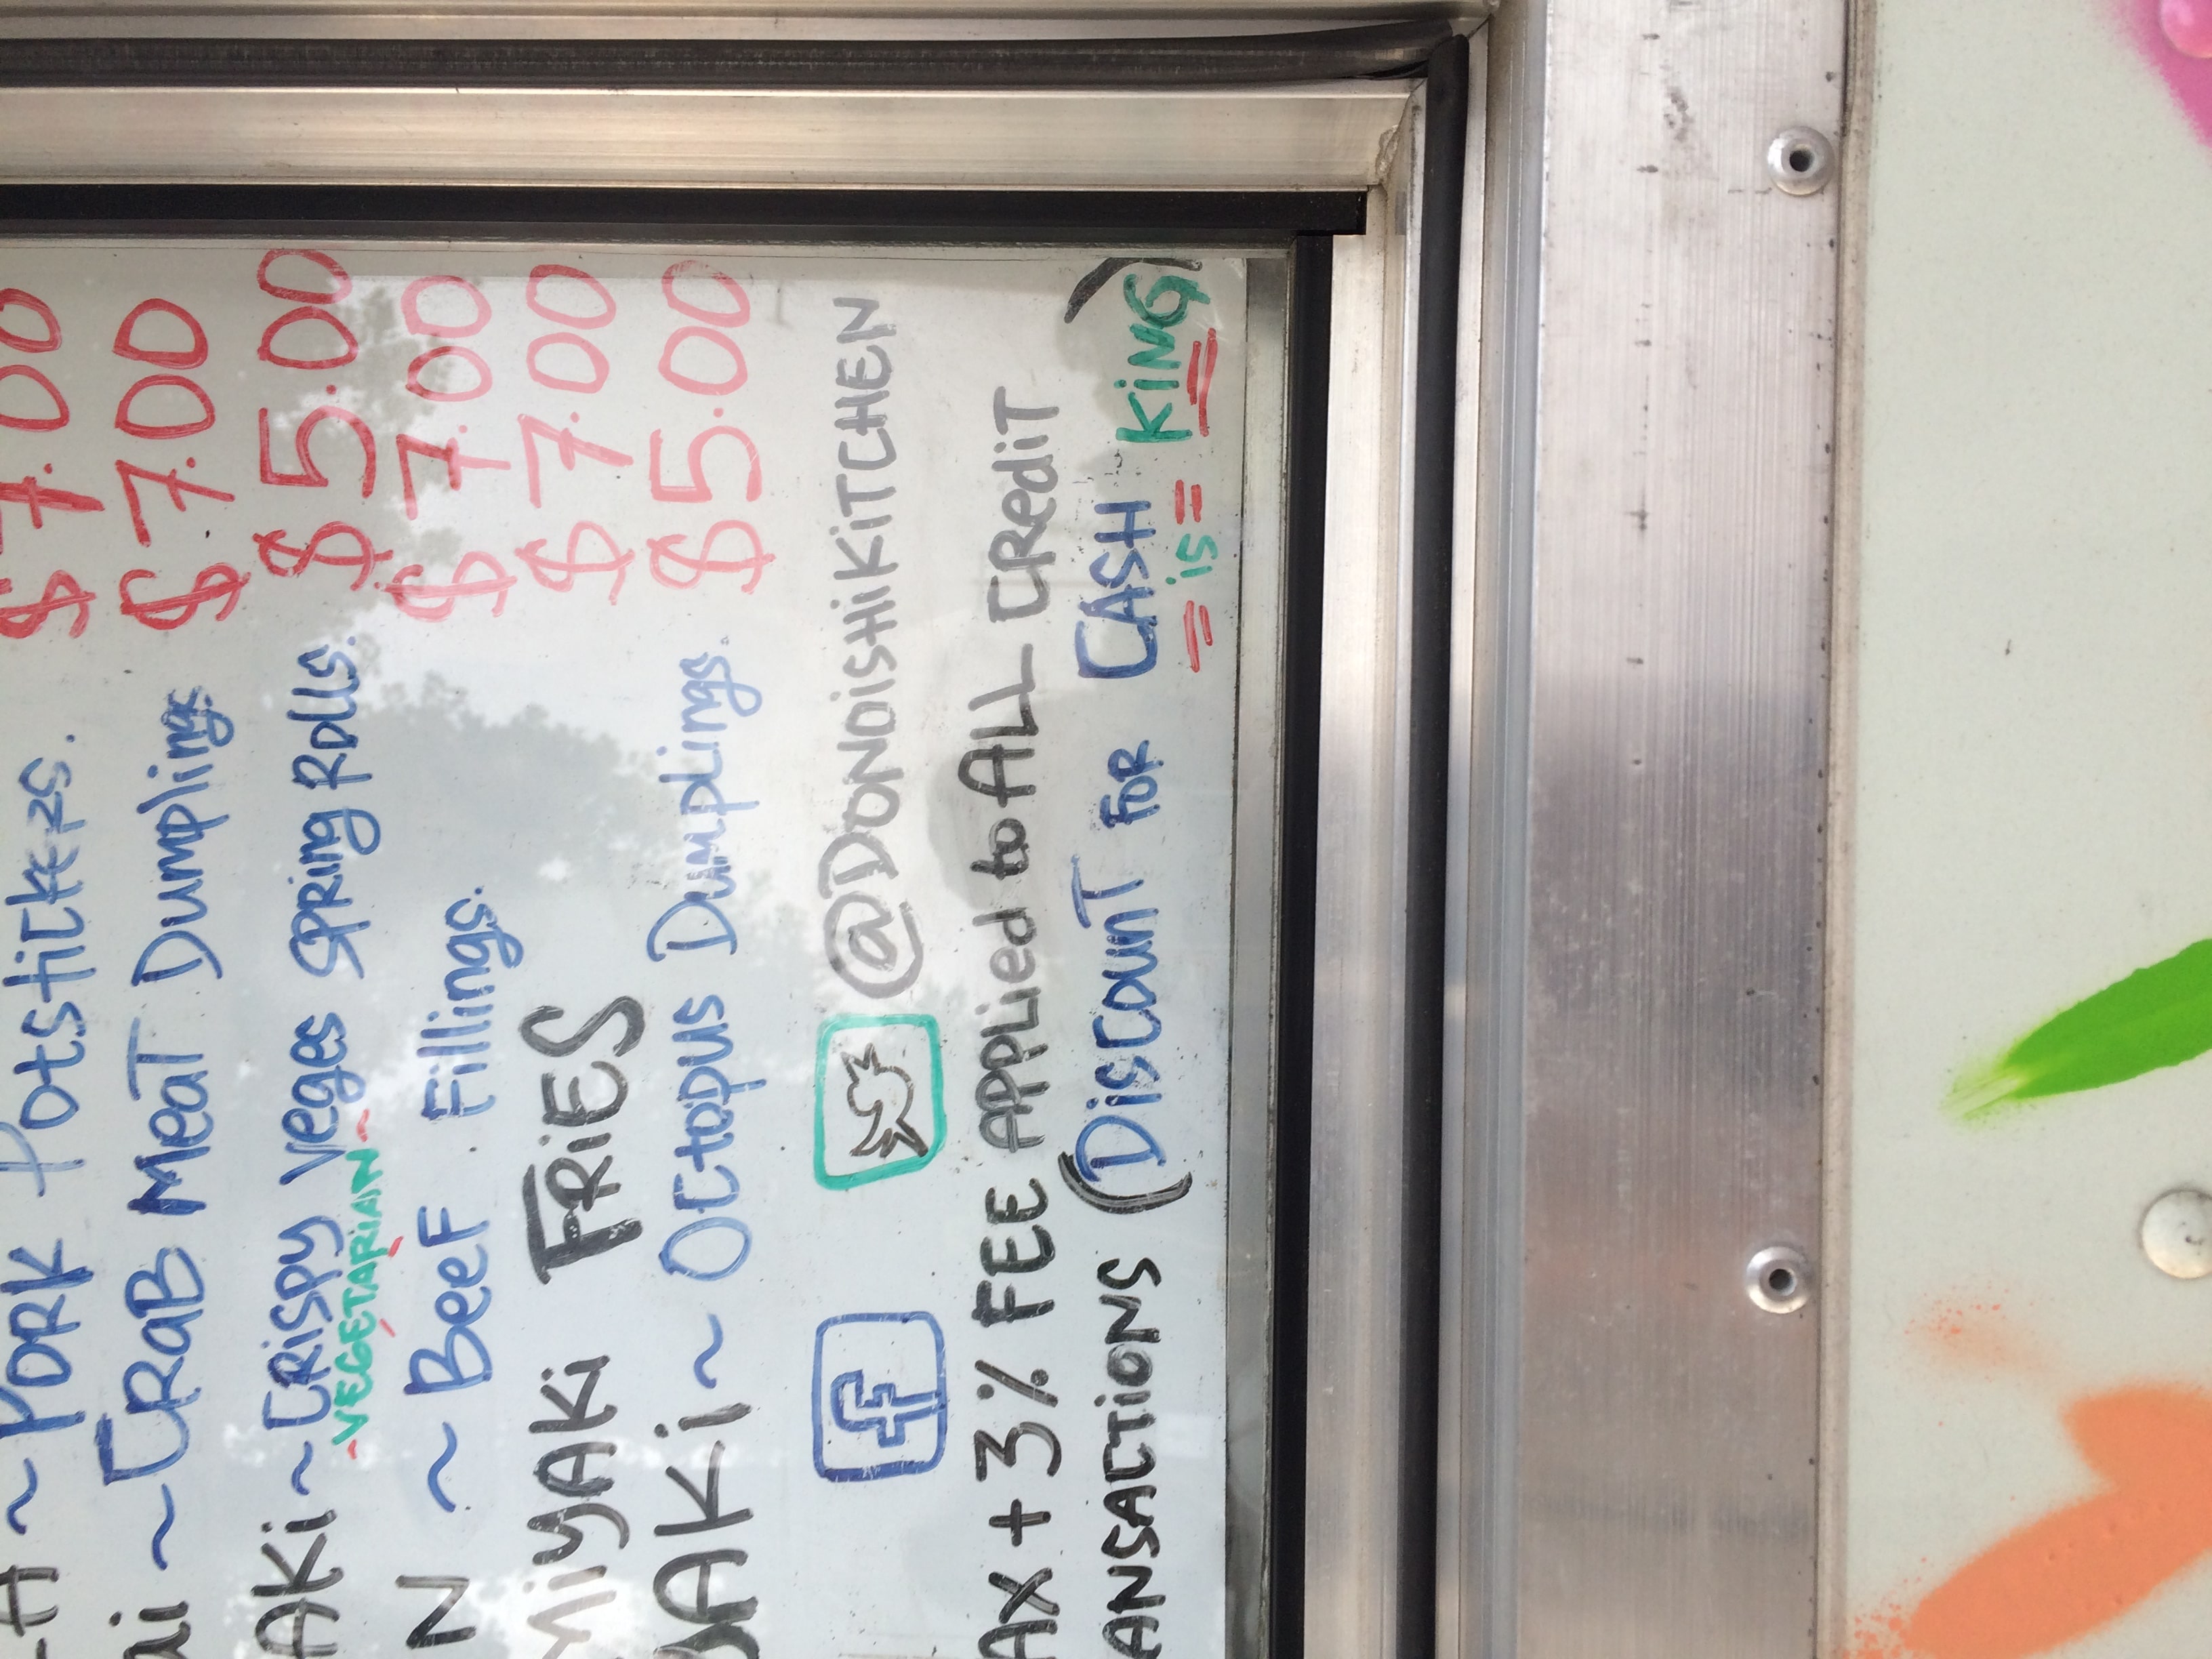 ~ PORK Potstickers. $7.00
ai ~ CRAB MEAT Dumplings $7.00
AKi ~ CRISPY Veges SPRING ROLLS. $5.00
-VEGETARIAN-
N ~ BEEF Fillings. $7.00
MiYAKi FRiES $7.00
AKi ~ Octopus Dumplings. $5.00
f @DONOiSHiKiTCHEN
AX + 3% FEE APPLied to ALL CRediT
ANSACTiONS (DiscounT FOR CASH KiNG)
= is =